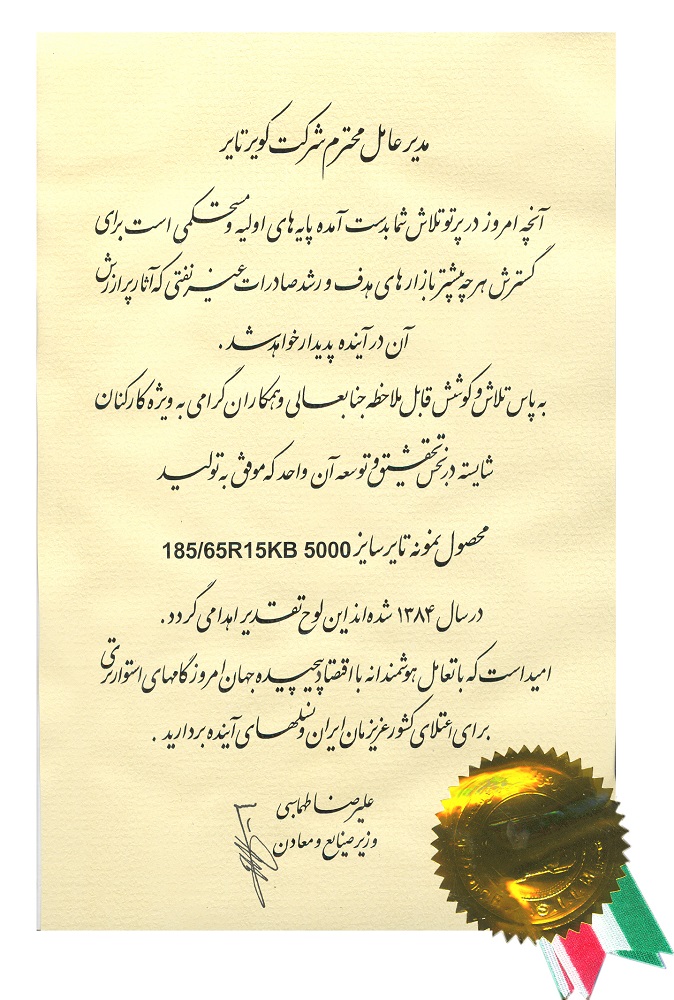 مدیر عامل محترم شرکت کویر تایر
آنچه امروز در پرتو تلاش شما بدست آمده پایه های اولیه و مستحکمی است برای
گسترش هرچه بیشتر بازارهای هدف و رشد صادرات غیر نفتی که آثار پر ارزش
آن در آینده پدیدار خواهد شد .
به پاس تلاش و کوشش قابل ملاحظه جنابعالی و همکاران گرامی به ویژه کارکنان
شایسته در بخش تحقیق و توسعه آن واحد که موفق به تولید
محصول نمونه تایر سایز 185/65R15KB 5000
در سال ۱۳۸۴ شده اند این لوح تقدیر اهدا می گردد .
امید است که با تعامل هوشمندانه با اقتصاد پیچیده جهان امروز گامهای استوارتری
برای اعتلای کشور عزیزمان ایران و نسلهای آینده بردارید .
علیرضا طهماسبی
وزیر صنایع و معادن